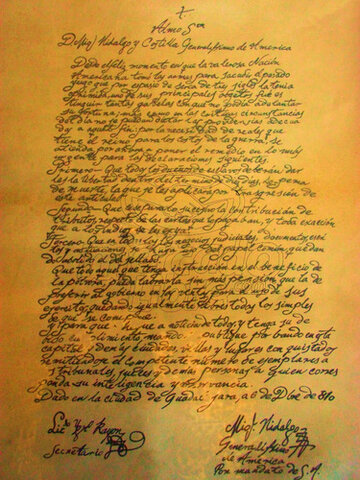 Almo Sor
D Miguel Hidalgo y Costilla Generalísimo de America
Desde el feliz momento en que la valerosa Nación
Americana tomó las armas para sacudir el pesado
yugo que por espacio de cerca de tres siglos la tenía
oprimida, uno de sus principales objetos fue ex
tinguir tantas gabelas con que no podía adelantar
su fortuna; mas como en las críticas circunstancias
del día no se puedan dictar las providencias adecua
das a aquel fin, por la necesidad de reales que
tiene el reino para los costos de la guerra, se
atienda por ahora a poner el remedio en lo más
urgente para las declaraciones siguientes
Primero Que todos los dueños de esclavos deberán dar
les la libertad dentro del término de diez días, so pena
de muerte, la que se les aplicará por trasgresión de
este artículo
Segundo Que cese para lo sucesivo la contribución de
tributos, respecto de las castas que lo pagaban, y toda exacción
que a los indios se les exija
Tercero Que en todos los negocios judiciales, documentos, escri
tos y actuaciones, se haga uso del papel común quedan
do abolido el del sellado
Que todo aquel que tenga instrucción en el beneficio de
la pólvora, pueda labrarla, sin más pensión que la de
preferir al gobierno en las ventas para el uso de sus
ejércitos, quedando igualmente libres todos los simples
de que se compone
Y para que llegue a noticia de todos y tenga su de
bido cumplimiento, mando se publique por bando en esta
capital y demás ciudades, villas y lugares conquistados
remitiéndose el competente número de ejemplares a
tribunales, jueces y demás personas a quien corres
ponda su inteligencia y observancia
Dado en la ciudad de Guadalajara, a 6 de Dbre de 810
Lic Rayon
Secretario
Migl Hidalgo
Generalísimo
de America
Por mandato de S. A.